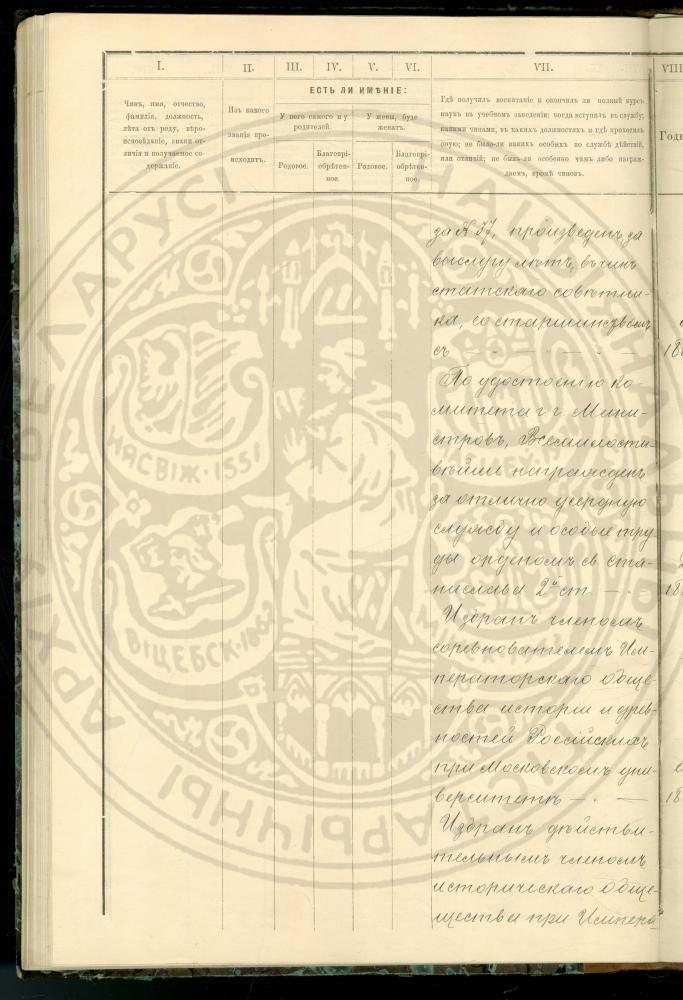 I. II. III. IV. V. VI. VII. VIII
ЕСТЬ ЛИ ИМѢНІЕ:
Чинъ, имя, отчество,
фамилія, должность,
лѣта отъ роду, вѣро-
исповѣданіе, знаки от-
личія и получаемое со-
держаніе.
Изъ какого
званія про-
исходитъ.
У него самого и у
родителей.
У жены, буде
женатъ.
Родовое.
Благопрі-
обрѣтен-
ное.
Родовое.
Благопрі-
обрѣтен-
ное.
Гдѣ получилъ воспитаніе и окончилъ ли полный курсъ
наукъ въ учебномъ заведеніи; когда вступилъ въ службу;
какими чинами, въ какихъ должностяхъ и гдѣ проходилъ
оную; не было-ли какихъ особыхъ по службѣ дѣяній,
или отличій; не былъ-ли особенно чѣмъ либо награж-
даемъ, кромѣ чиновъ.
за № 37, произведенъ за
выслугу лѣтъ, въ чинъ
статскаго совѣтни-
ка, со старшинствомъ
съ
По удостоенію Ко-
митета г.г. Мини-
стровъ, Всемилости-
вѣйше награжденъ
за отлично усердную
службу и особые тру-
ды орденомъ св. Ста-
нислава 2й ст.
Избранъ членомъ
соревнователемъ Им-
ператорскаго обще-
ства исторіи и древ-
ностей Россійскихъ
при Московскомъ уни-
верситетѣ
Избранъ дѣйстви-
тельнымъ членомъ
историческаго обще-
щества при Импера
НЯСВІЖ·1551
ВІЦЕБСК·